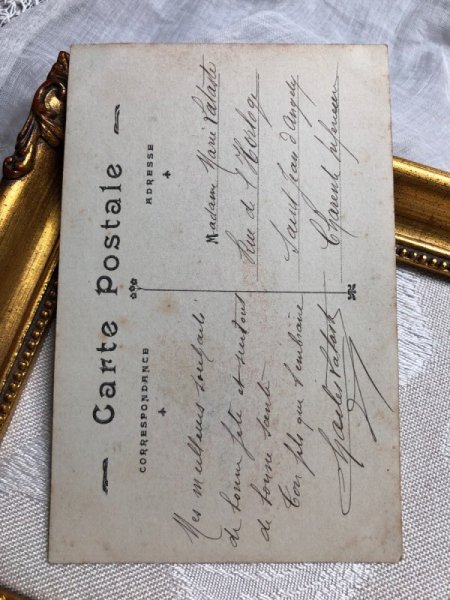 Carte Postale
CORRESPONDANCE
ADRESSE
Mes meilleurs souhaits
de bonne fête et surtout
de bonne santé
Ton fils qui t'embrasse
Madame Marie
Rue de l'Horloge
Saint Jean d'Angely
Charente Inférieure